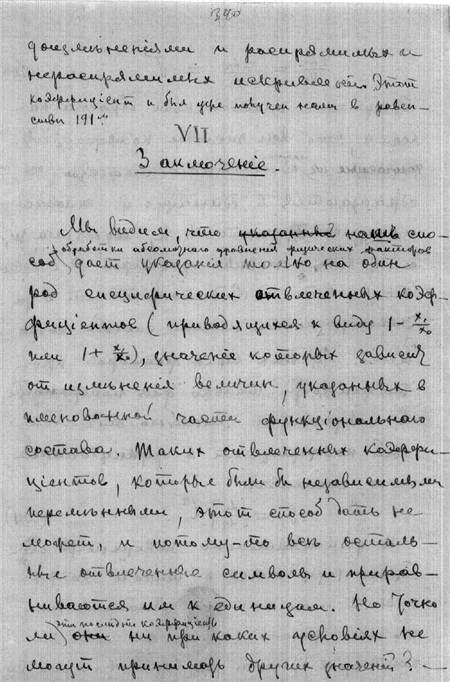 340
доизмѣненіями и распрямимых и
нераспрямимых искривле Этот
коэффиціент и был уже получен нами в равен-
ствѣ 191
VII
Заключеніе.
Мы видим, что указанный нами спо-
обработки абсолютного уравнения физических факторов
соб дает указания только на один
род специфических отвлеченных коэф-
фиціентов (приводящихся к виду 1 - x₁/x₀
или 1 + x₁/x₀), значеніе которых зависит
от измѣненія величин, указанных в
именованной части функціональнаго
состава. Таких отвлеченных коэффи-
ціентов, которые были бы независимыми
перемѣнными, этот способ дать не
может, и потому-то всѣ осталь-
ные отвлеченные символы и прирав-
ниваются им к единицам. Но точно
эти послѣдніе коэффиціенты
ли они ни при каких условіях не
могут принимать других значений? -